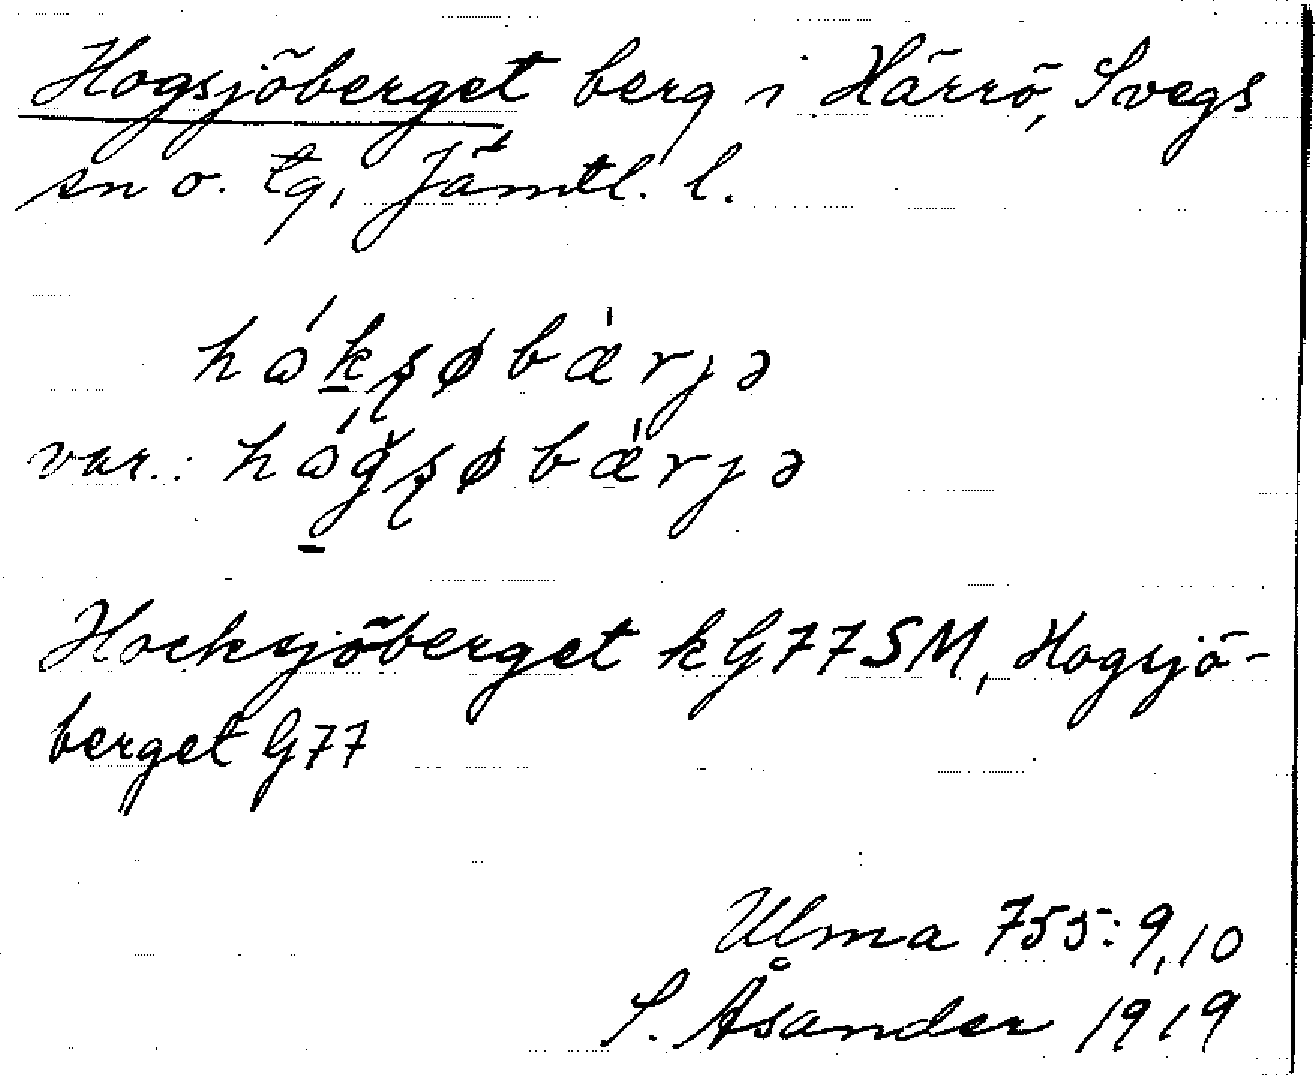 Hogsjöberget berg i Härrö, Svegs
sn o. tg, Jämtl. l.
hákʂøbæ̀rjə
var.: hágʂøbæ̀rjə
Hocksjöberget kG77SM, Hogsjö-
berget G77
Ulma 755:9,10
S. Åsander 1919